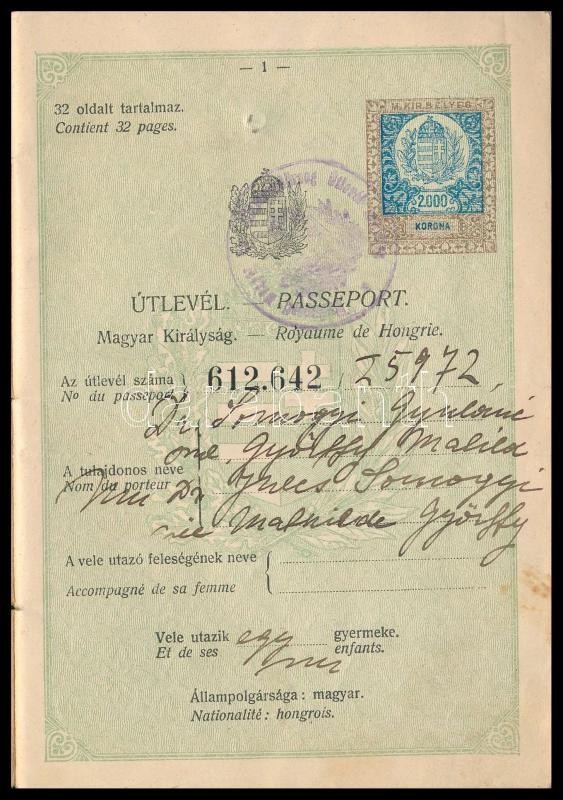 — 1 —
32 oldalt tartalmaz.
Contient 32 pages.
M. KIR. BÉLYEG
2.000
KORONA
ÚTLEVÉL. — PASSEPORT.
Magyar Királyság. — Royaume de Hongrie.
Az útlevél száma
No du passeport
612.642 / I 5972
Dr. Somogyi Gyuláné
A tulajdonos neve
Nom du porteur
Dr Somogyi
née Mathilde Györffy
A vele utazó feleségének neve
Accompagné de sa femme
Vele utazik egy gyermeke.
Et de ses un enfants.
Állampolgársága : magyar.
Nationalité : hongrois.